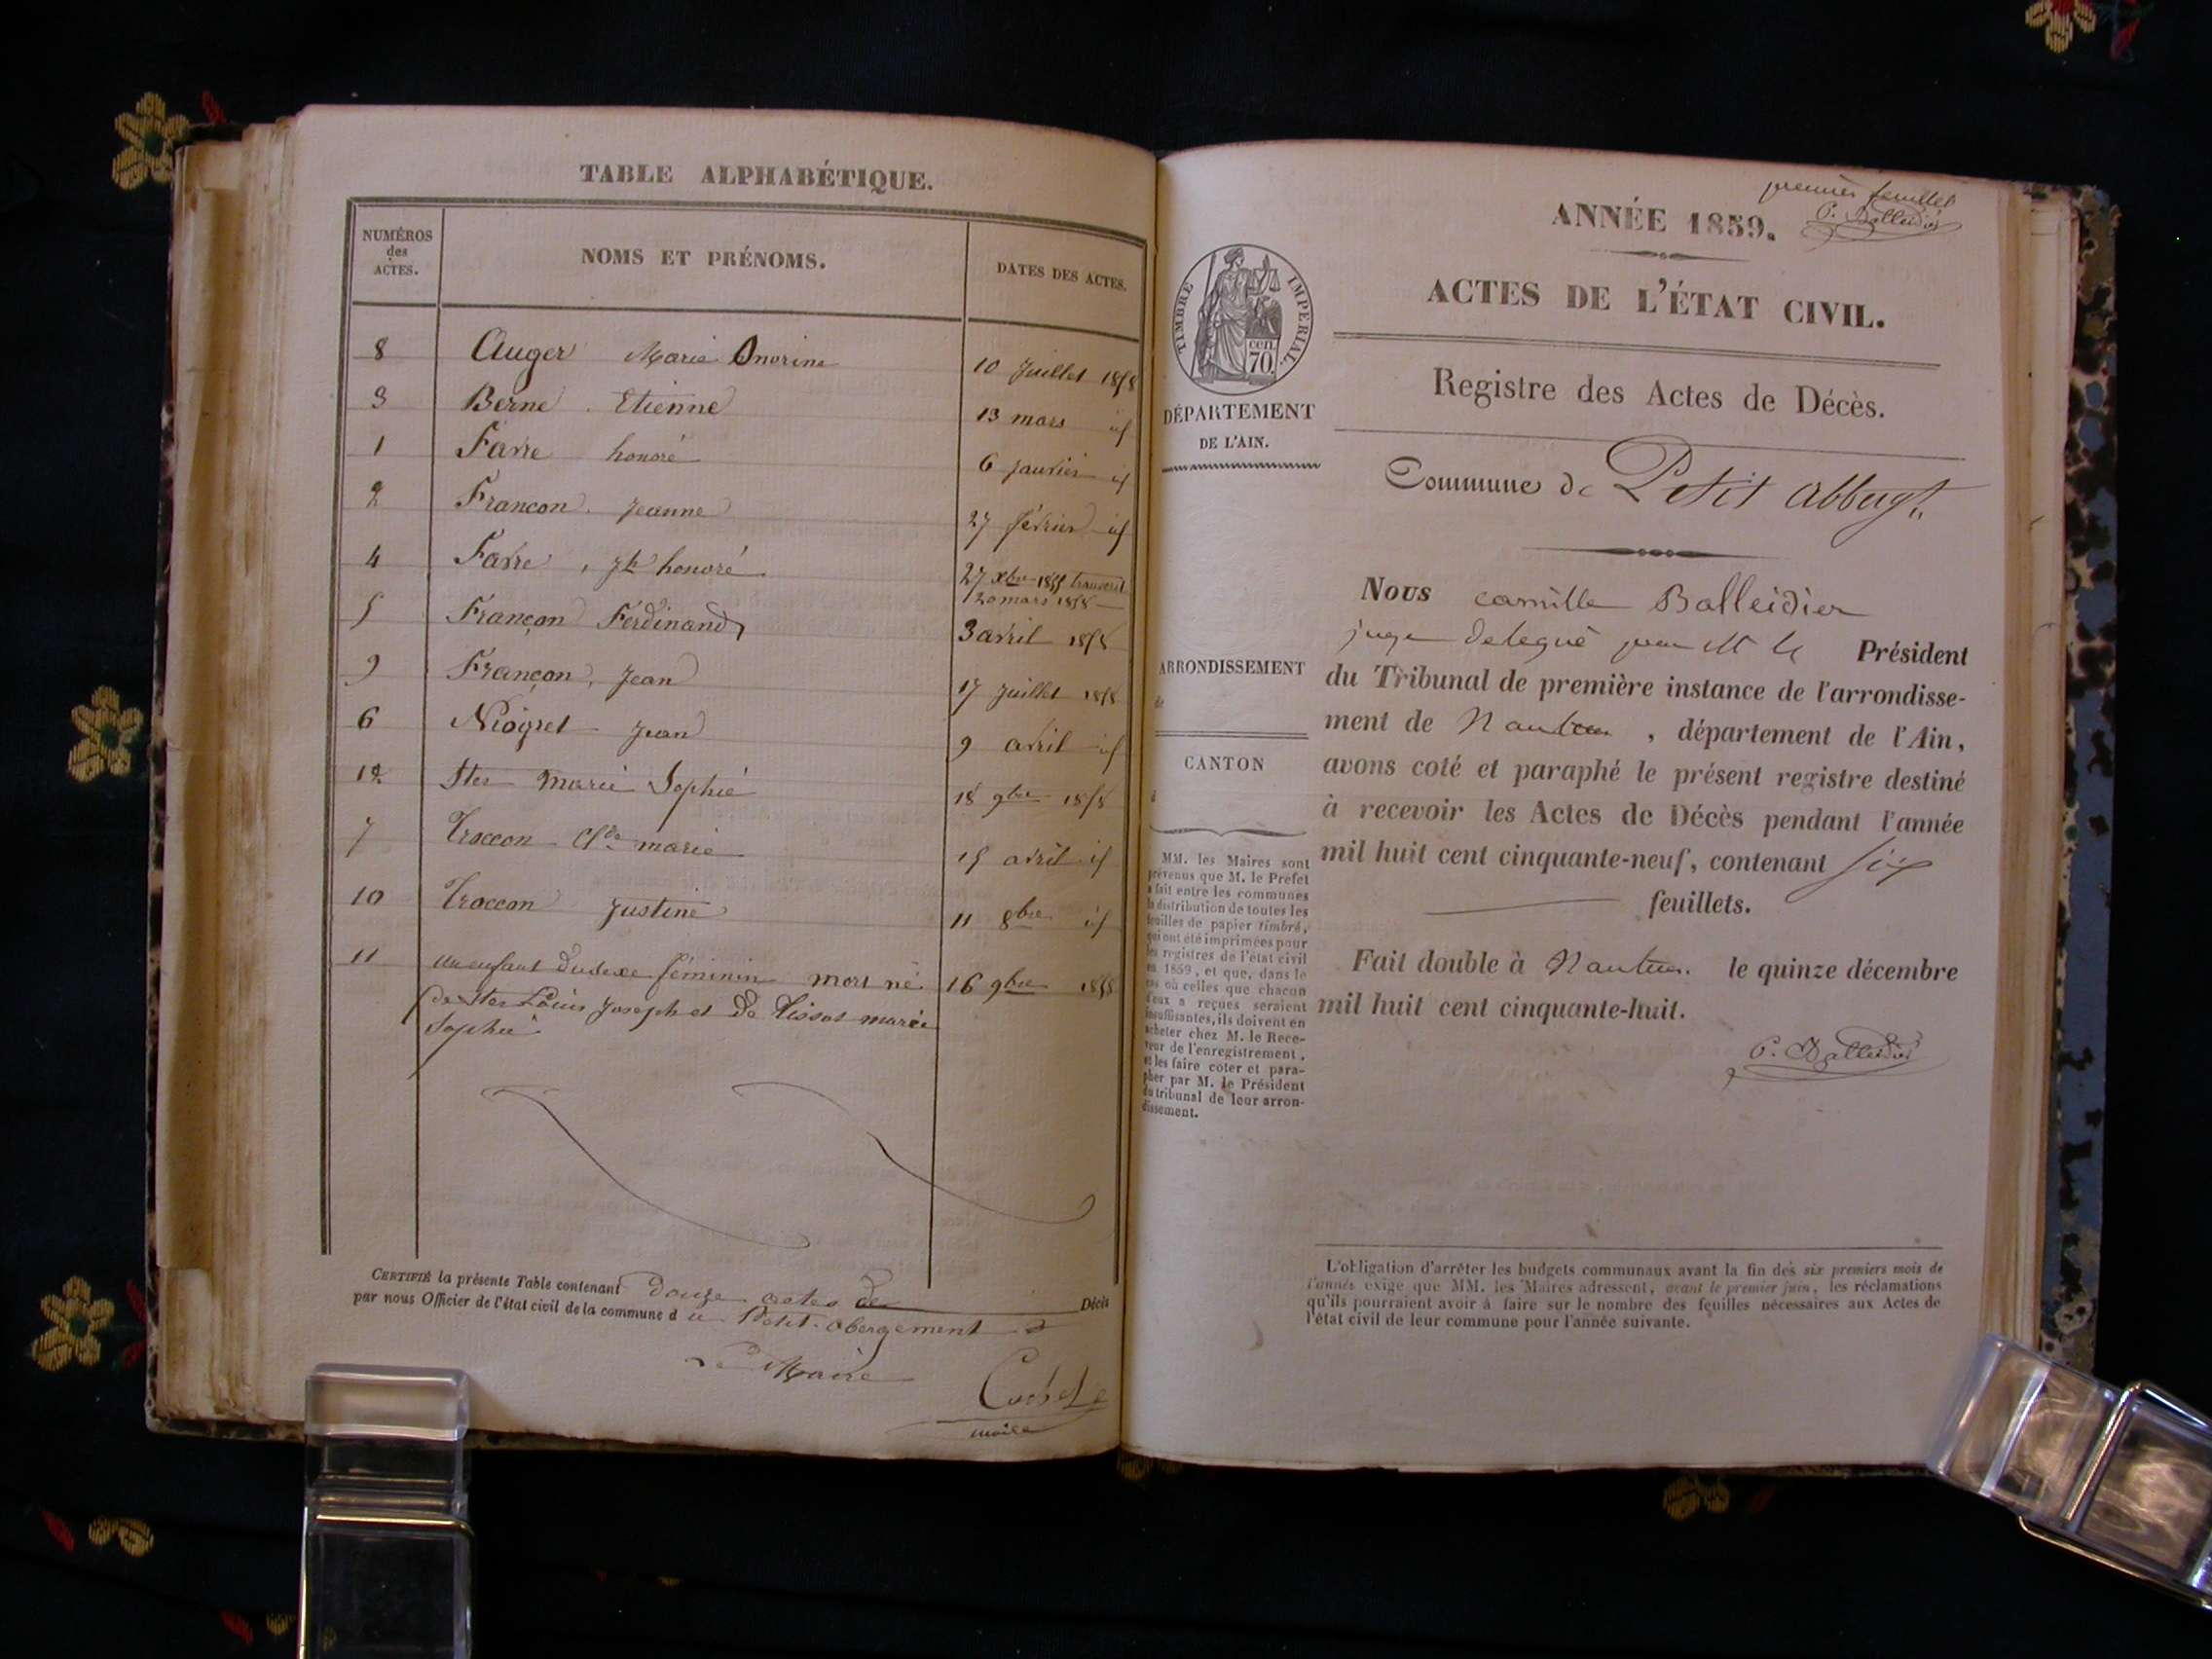 TABLE ALPHABÉTIQUE.
NUMÉROS des ACTES.
NOMS ET PRÉNOMS.
DATES DES ACTES.
8 Auger Marie Onorine 10 juillet 1858
3 Berne Etienne 13 mars id
1 Favre honoré 6 janvier id
2 Françon Jeanne 27 février id
4 Favre, jh honoré 27 xbre 1855 transcrit
20 mars 1858
5 Françon Ferdinand 3 avril 1858
9 Françon, Jean 17 juillet 1858
6 Niogret Jean 9 avril id
12 Ster marie Sophie 18 9bre 1858
7 Troccon Clde marie 15 avril id
10 Troccon Justine 11 8bre id
11 un enfant du sexe féminin mort né 16 9bre 1858
de Ster Louis Joseph et de Lissot marie
Sophie
CERTIFIÉ la présente Table contenant douze actes de Décès
par nous Officier de l'état civil de la commune d u Petit-abergement
Le Maire
Cochet
maire
premier feuillet
C. Balleidier
ANNÉE 1859.
ACTES DE L'ÉTAT CIVIL.
TIMBRE IMPÉRIAL.
cen.
70.
DÉPARTEMENT
DE L'AIN.
Registre des Actes de Décès.
Commune de Petit abbergt.
ARRONDISSEMENT
de
CANTON
d
MM. les Maires sont
prévenus que M. le Préfet
a fait entre les communes
la distribution de toutes les
feuilles de papier timbré,
qui ont été imprimées pour
les registres de l'état civil
en 1859, et que, dans le
cas où celles que chacun
d'eux a reçues seraient
insuffisantes, ils doivent en
acheter chez M. le Rece-
veur de l'enregistrement,
et les faire coter et para-
pher par M. le Président
du tribunal de leur arron-
dissement.
Nous camille Balleidier
juge delegué par M le Président
du Tribunal de première instance de l'arrondisse-
ment de Nantua, département de l'Ain,
avons coté et paraphé le présent registre destiné
à recevoir les Actes de Décès pendant l'année
mil huit cent cinquante-neuf, contenant six
feuillets.
Fait double à Nantua. le quinze décembre
mil huit cent cinquante-huit.
C. Balleidier
L'obligation d'arrêter les budgets communaux avant la fin des six premiers mois de
l'année exige que MM. les Maires adressent, avant le premier juin, les réclamations
qu'ils pourraient avoir à faire sur le nombre des feuilles nécessaires aux Actes de
l'état civil de leur commune pour l'année suivante.